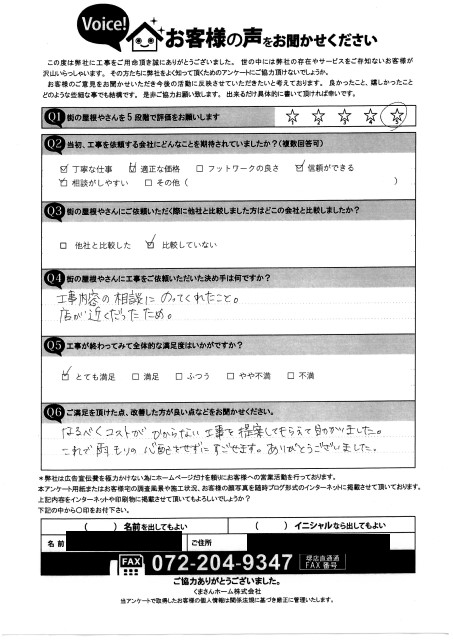 Voice!
お客様の声をお聞かせください
この度は弊社に工事をご用命頂き誠にありがとうございました。世の中には弊社の存在やサービスをご存知ないお客様が
沢山いらっしゃいます。その方たちに弊社をよく知って頂くためのアンケートにご協力頂けないでしょうか。
お客様のご意見をお聞かせいただき今後の活動に反映させていただきたいと考えております。良かったこと、嬉しかったこと
どのような些細な事でも結構です。是非ご協力お願い致します。出来るだけ具体的に書いて頂ければ幸いです。
Q1 街の屋根やさんを5段階で評価をお願いします
1 2 3 4 5
Q2 当初、工事を依頼する会社にどんなことを期待されていましたか?(複数回答可)
丁寧な仕事 適正な価格 フットワークの良さ 信頼ができる
相談がしやすい その他( )
Q3 街の屋根やさんにご依頼いただく際に他社と比較しました方はどこの会社と比較しましたか?
他社と比較した 比較していない
Q4 街の屋根やさんに工事をご依頼いただいた決め手は何ですか?
工事内容の相談にのってくれたこと。
店が近くだったため。
Q5 工事が終わってみて全体的な満足度はいかがですか?
とても満足 満足 ふつう やや不満 不満
Q6 ご満足を頂けた点、改善した方が良い点などをお聞かせください。
なるべくコストがかからない工事を提案してもらえて助かりました。
これで雨もりの心配をせずにすごせます。ありがとうございました。
*弊社は広告宣伝費を極力かけない為にホームページだけを頼りにお客様への営業活動を行っております。
本アンケート用紙またはお客様宅の調査風景や施工状況、お客様の顔写真を随時ブログ形式のインターネットに掲載させて頂いております。
上記内容をインターネットや印刷物に掲載させて頂いてもよろしいでしょうか?
下記の中から〇印をお付下さい。
( )名前を出してもよい ( )イニシャルなら出してもよい
名前 ご住所
FAX 072-204-9347 球店直通通 FAX番号
ご協力ありがとうございました。
くまさんホーム株式会社
当アンケートで取得したお客様の個人情報は関係法規に基づき厳正に管理いたします。